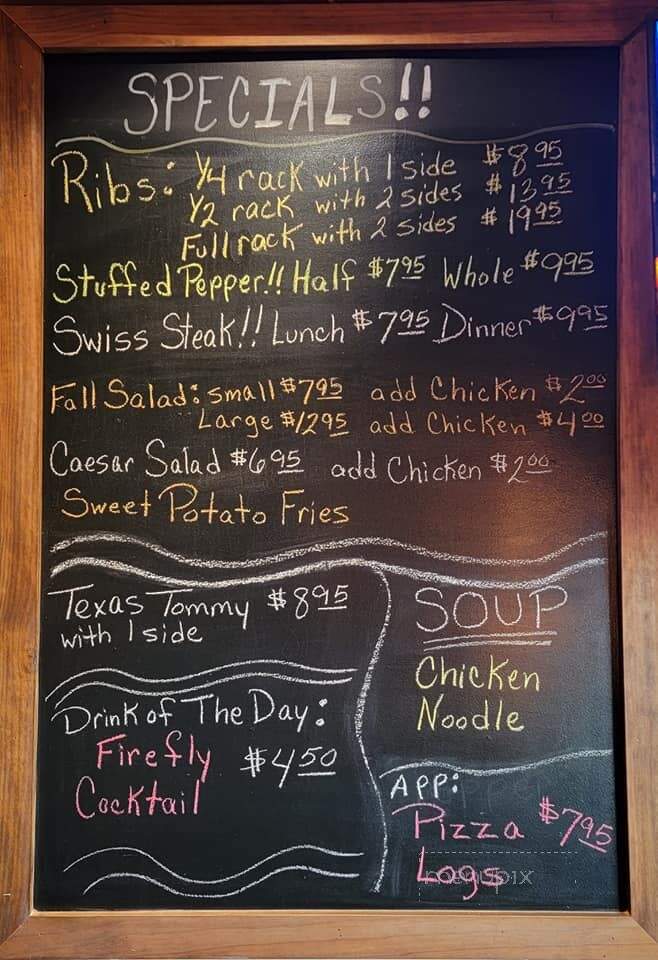 SPECIALS!!
Ribs: 1/4 rack with 1 side $8.95
1/2 rack with 2 sides $13.95
Full rack with 2 sides $19.95
Stuffed Pepper!! Half $7.95 Whole $9.95
Swiss Steak!! Lunch $7.95 Dinner $9.95
Fall Salad: small $7.95 add Chicken $2.00
Large $12.95 add Chicken $4.00
Caesar Salad $6.95 add Chicken $2.00
Sweet Potato Fries
Texas Tommy $8.95
with 1 side
Drink of The Day:
Firefly $4.50
Cocktail
SOUP
Chicken
Noodle
APP:
Pizza $7.95
Logs
menupix